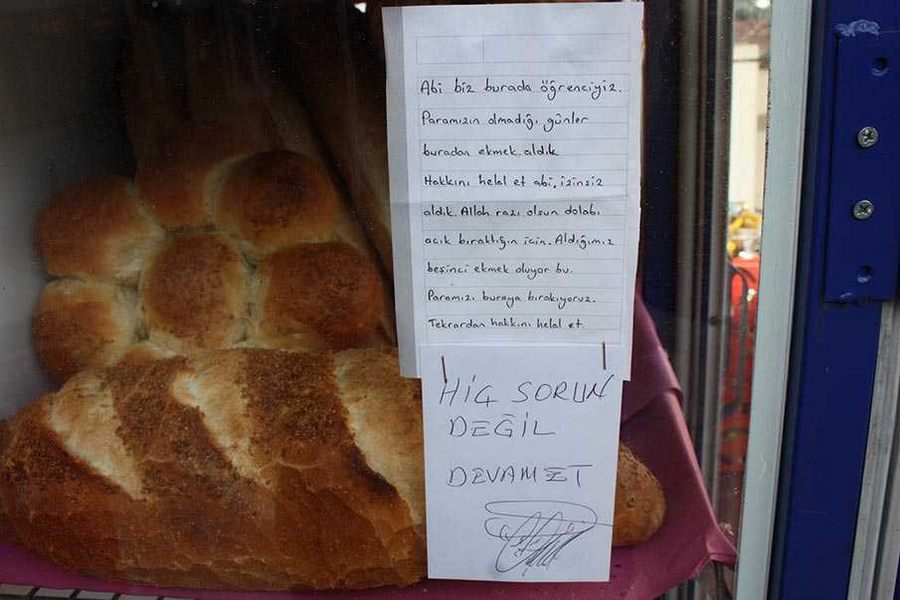 Abi biz burada öğrenciyiz.
Paramızın olmadığı günler
buradan ekmek aldık
Hakkını helal et abi, izinsiz
aldık. Allah razı olsun dolabı
açık bıraktığın için. Aldığımız
beşinci ekmek oluyor bu.
Paramızı buraya bırakıyoruz.
Tekrardan hakkını helal et.
HİÇ SORUN
DEĞİL
DEVAM ET